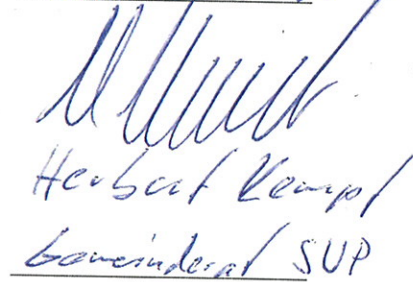 Herbert Kempf
Gemeinderat SVP